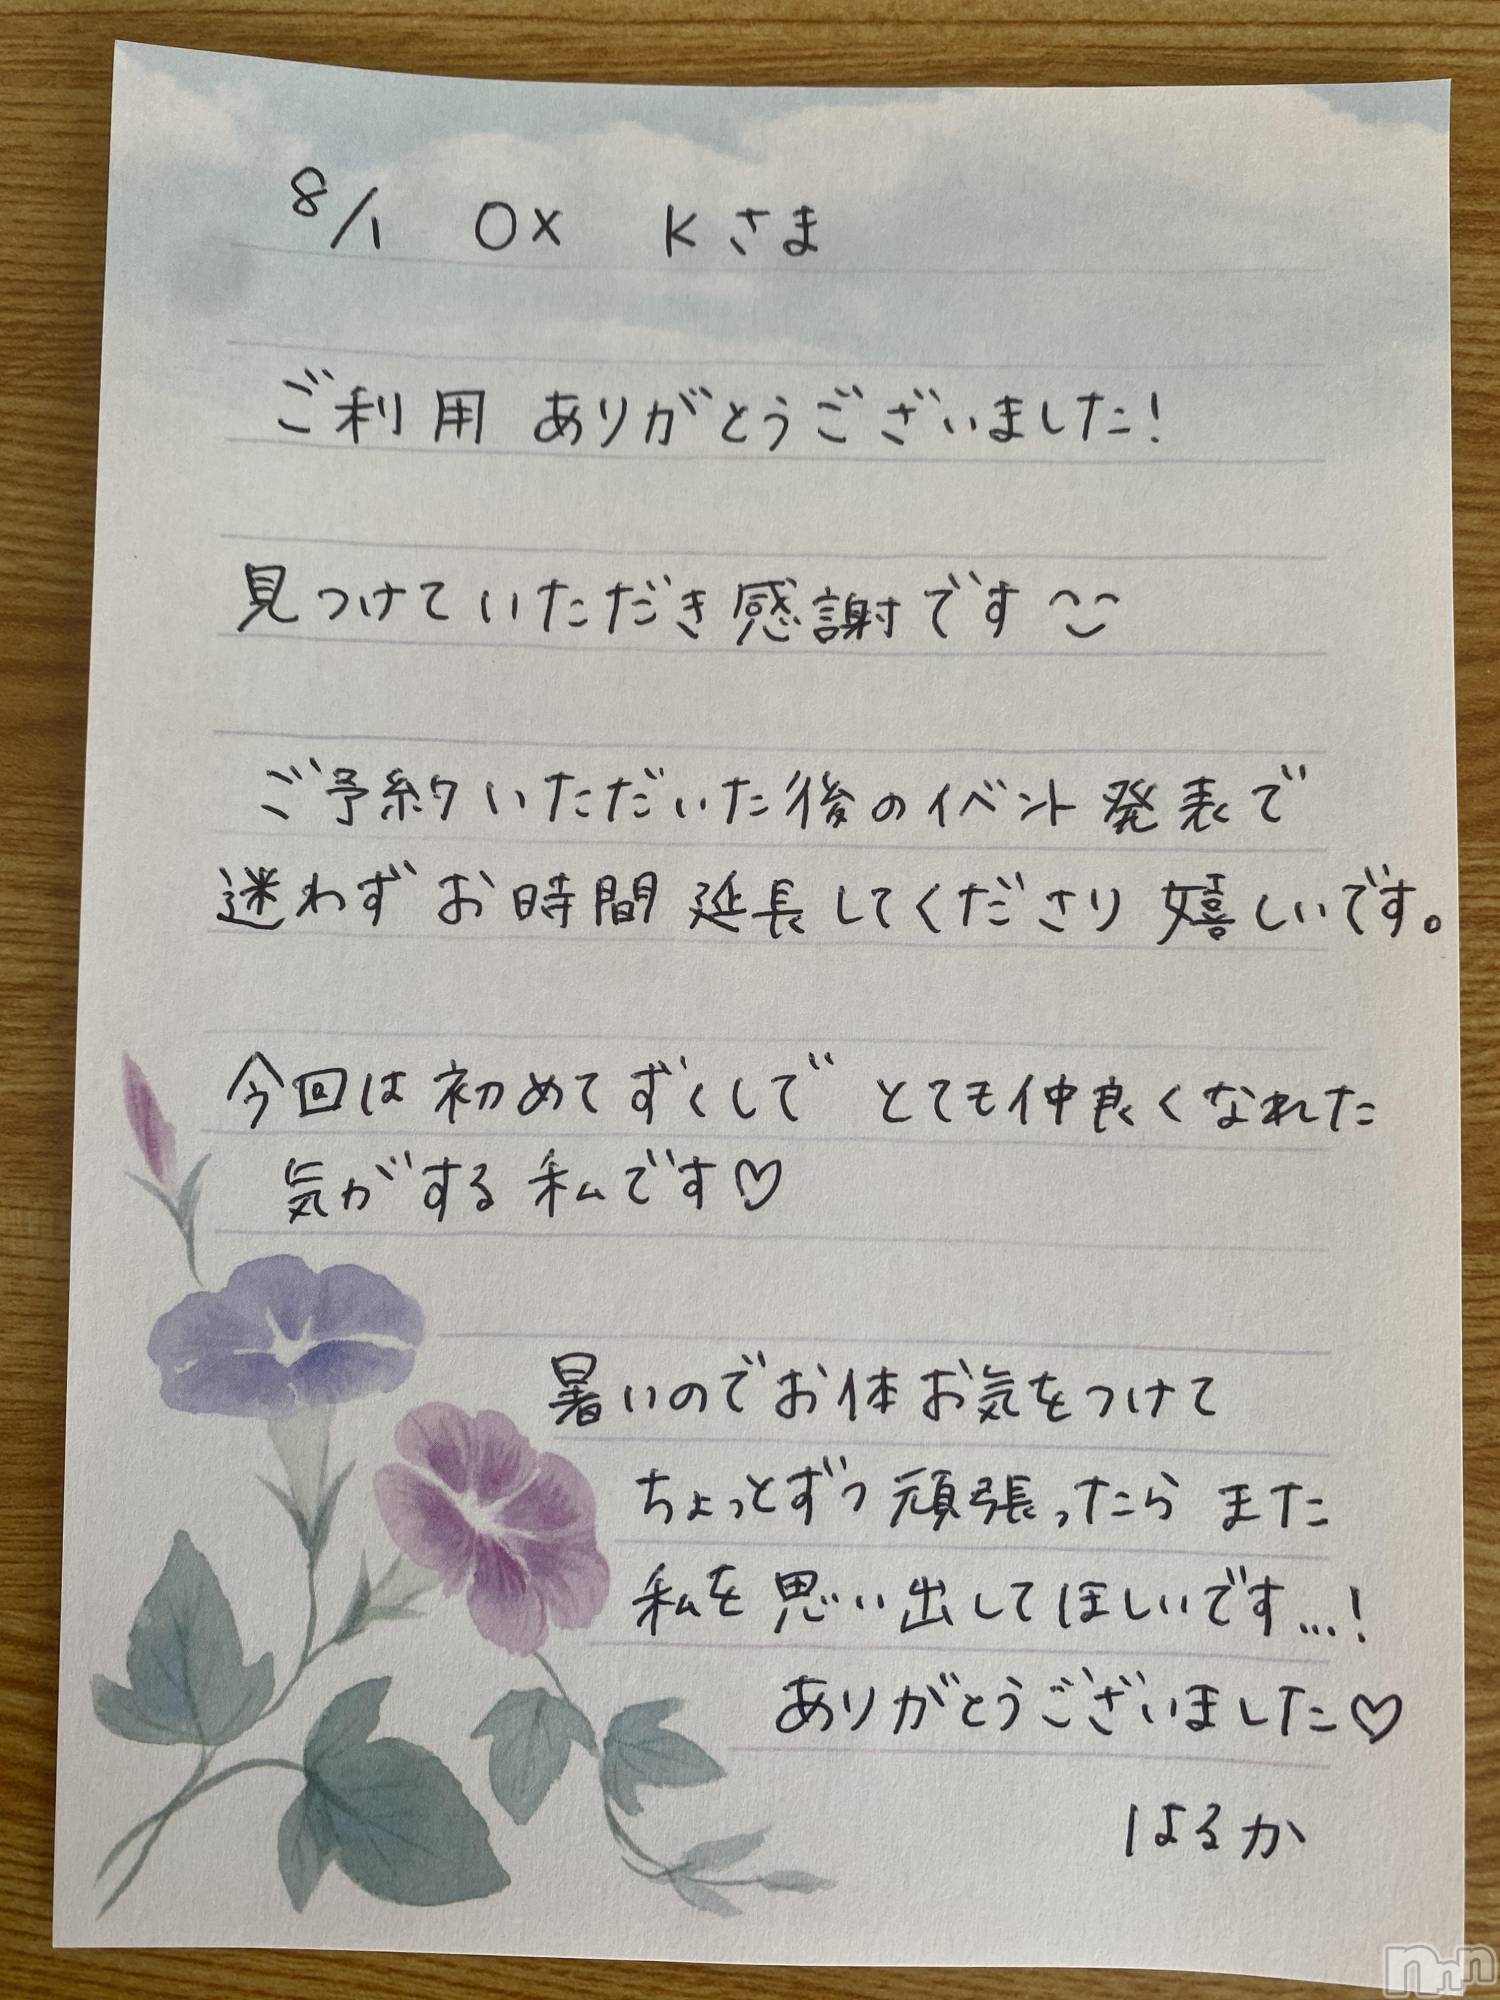 8/1 OX Kさま
ご利用 ありがとうございました!
見つけていただき感謝です
ご予約いただいた後のイベント発表で
迷わずお時間延長してくださり嬉しいです。
今回は初めてずくしで とても仲良くなれた
気がする私です♡
暑いのでお体お気をつけて
ちょっとずつ頑張ったらまた
私を思い出してほしいです...!
ありがとうございました♡
はるか
nnn